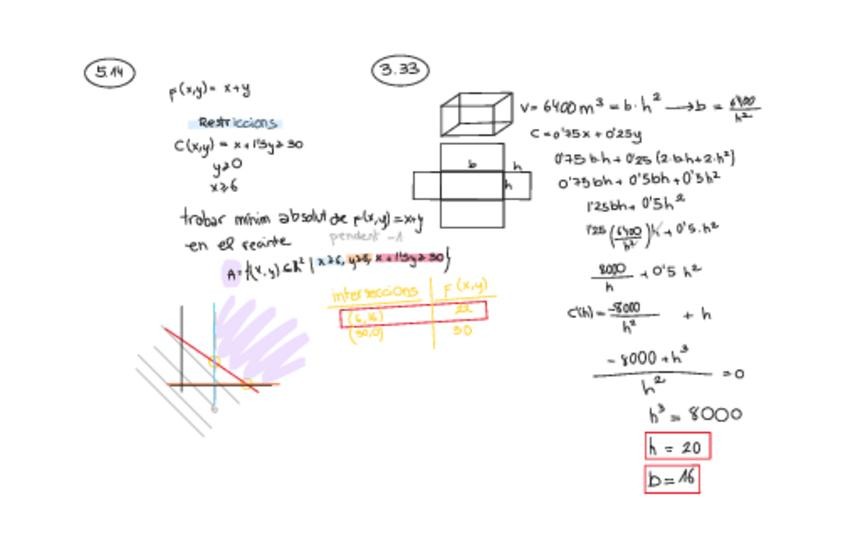 5.14
F(x,y)= x+y
Restriccions
C(x,y) = x+1'5y≥30
y≥0
x≥6
trobar mínim absolut de F(x,y)=x+y
pendent -1
en el recinte
A={(x,y)∈R² | x≥6, y≥0, x+1'5y≥30}
interseccions F(x,y)
(6,16) 22
(30,0) 30
3.33
V= 6400m³ = b·h² → b = 6400/h²
C=0'75x+0'25y
b h
h
0'75b·h+0'25(2·b·h+2·h²)
0'75bh+0'5bh+0'5h²
1'25bh+0'5h²
1'25(6400/h²)h+0'5·h²
8000/h +0'5h²
C'(h)= -8000/h² + h
-8000+h³/h² =0
h³ = 8000
h = 20
b = 16